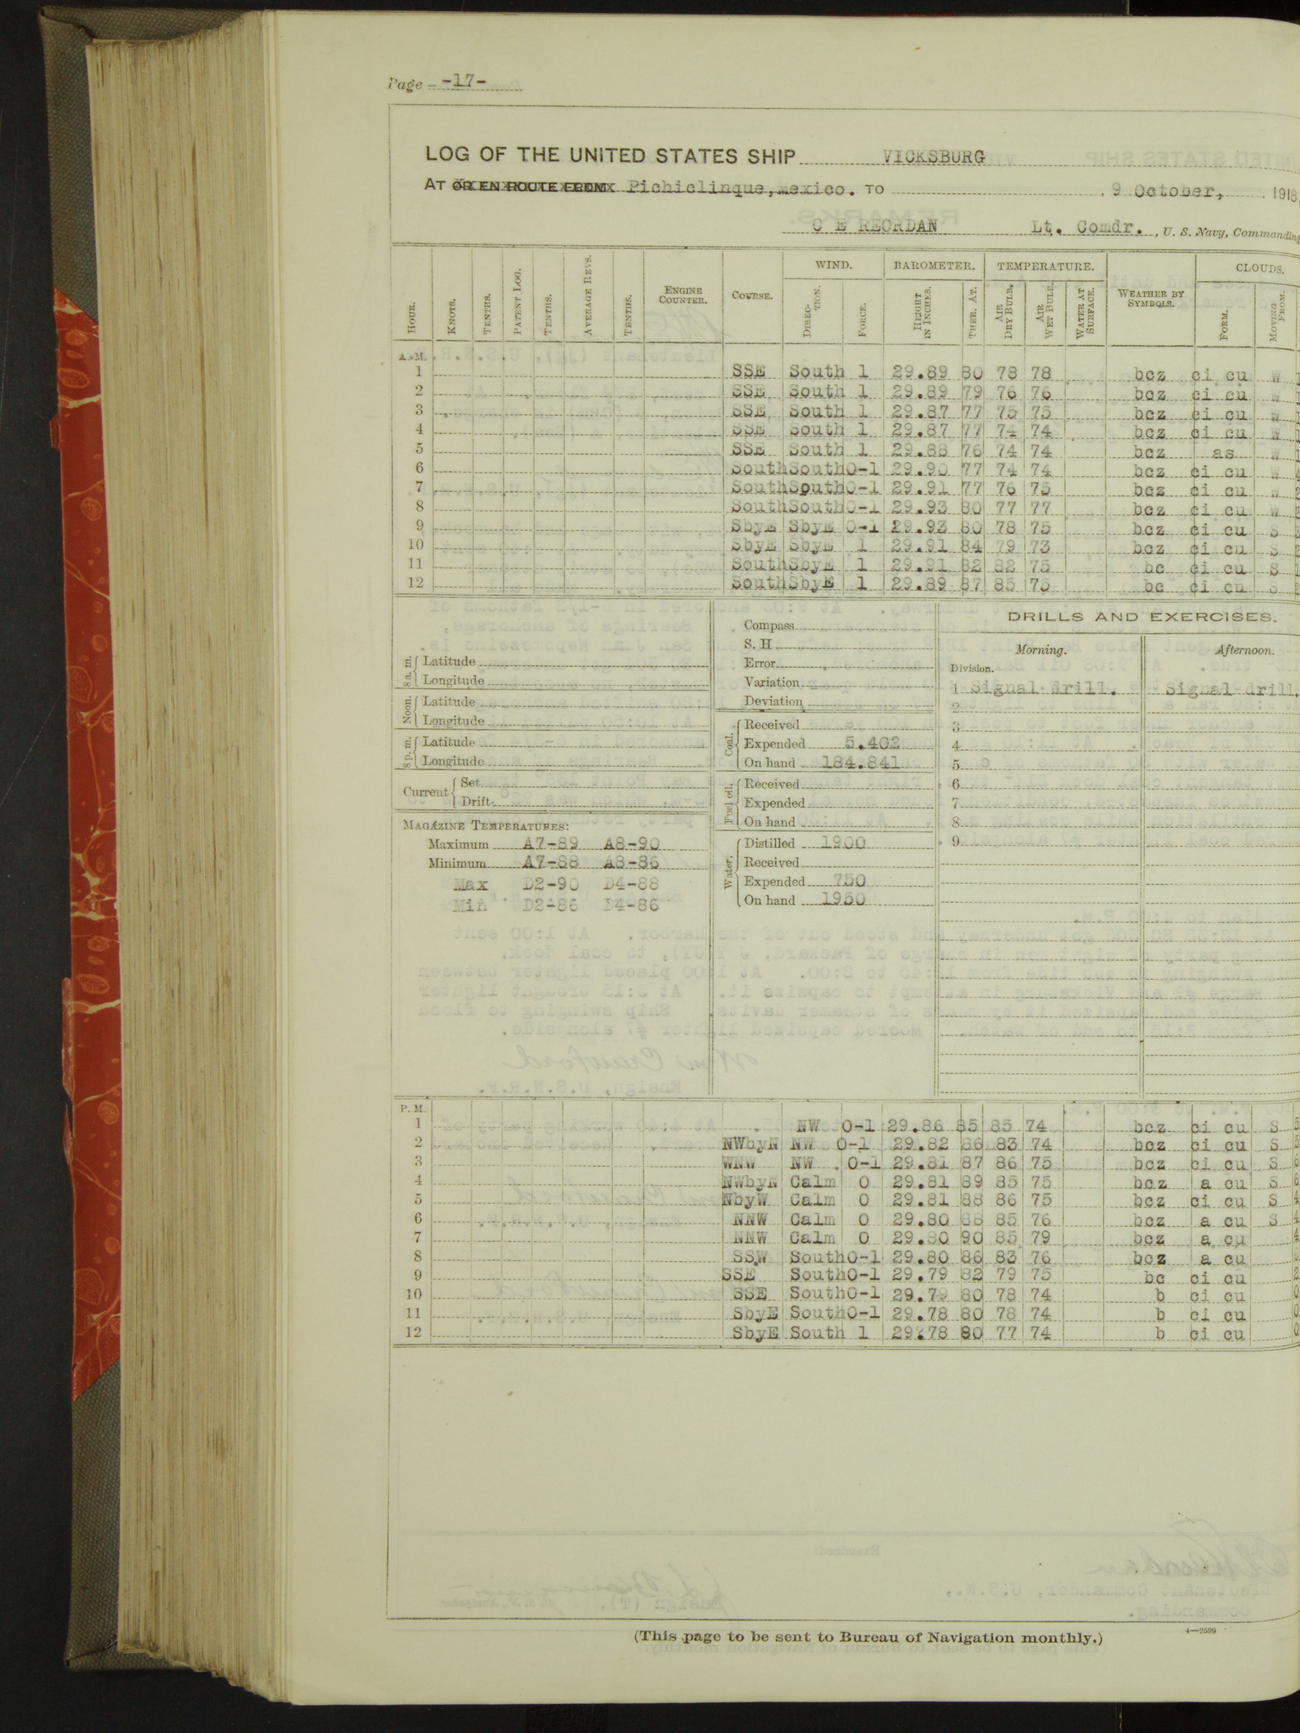 Page -17-
LOG OF THE UNITED STATES SHIP VICKSBURG
AT OR EN ROUTE FROM Pichiclinque, Mexico. TO 9 October, 1918,
C E REORDAN Lt. Comdr. , U. S. Navy, Commanding
WIND. BAROMETER. TEMPERATURE. CLOUDS.
HOUR. KNOTS. TENTHS. PATENT LOG. TENTHS. AVERAGE REVS. TENTHS. ENGINE COUNTER. COURSE. DIRECTION. FORCE. HEIGHT IN INCHES. THER. AT. AIR DRY BULB. AIR WET BULB. WATER AT SURFACE. WEATHER BY SYMBOLS. FORM. MOVING FROM.
A.M.
1 SSE South 1 29.89 80 78 78 bcz ci cu W
2 SSE South 1 29.89 79 76 76 bcz ci cu W
3 SSE South 1 29.87 77 75 75 bcz ci cu W
4 SSE South 1 29.87 77 74 74 bcz ci cu W
5 SSE South 1 29.88 76 74 74 bcz as W
6 South South 0-1 29.90 77 74 74 bcz ci cu W
7 South South 0-1 29.91 77 76 75 bcz ci cu W
8 South South 0-1 29.93 80 77 77 bcz ci cu W
9 SbyE SbyE 0-1 29.93 80 78 75 bcz ci cu S
10 SbyE SbyE 1 29.91 84 79 73 bcz ci cu S
11 South SbyE 1 29.91 82 82 75 bc ci cu S
12 South SbyE 1 29.89 87 85 75 bc ci cu S
8 a.m. Latitude
Longitude
Noon. Latitude
Longitude
8 p.m. Latitude
Longitude
Current Set
Drift
MAGAZINE TEMPERATURES:
Maximum A7-89 A8-90
Minimum A7-88 A8-86
Max D2-90 D4-88
Min D2-86 D4-86
Compass
S. H
Error
Variation
Deviation
Coal. Received
Expended 5.402
On hand 184.841
Fuel oil. Received
Expended
On hand
Water. Distilled 1900
Received
Expended 750
On hand 1950
DRILLS AND EXERCISES.
Morning. Afternoon.
Division.
1 Signal drill. Signal drill.
2
3
4
5
6
7
8
9
P. M.
1 NW 0-1 29.86 85 85 74 bcz ci cu S
2 NWbyN NW 0-1 29.82 86 83 74 bcz ci cu S
3 WNW NW 0-1 29.81 87 86 75 bcz ci cu S
4 NWbyN Calm 0 29.81 89 85 75 bcz a cu S
5 NbyW Calm 0 29.81 88 86 75 bcz ci cu S
6 NNW Calm 0 29.80 88 85 76 bcz a cu S
7 NNW Calm 0 29.80 90 85 79 bcz a cu
8 SSW South 0-1 29.80 86 83 76 bcz a cu
9 SSE South 0-1 29.79 82 79 75 bc ci cu
10 SSE South 0-1 29.79 80 78 74 b ci cu
11 SbyE South 0-1 29.78 80 78 74 b ci cu
12 SbyE South 1 29.78 80 77 74 b ci cu
(This page to be sent to Bureau of Navigation monthly.)
4—2599